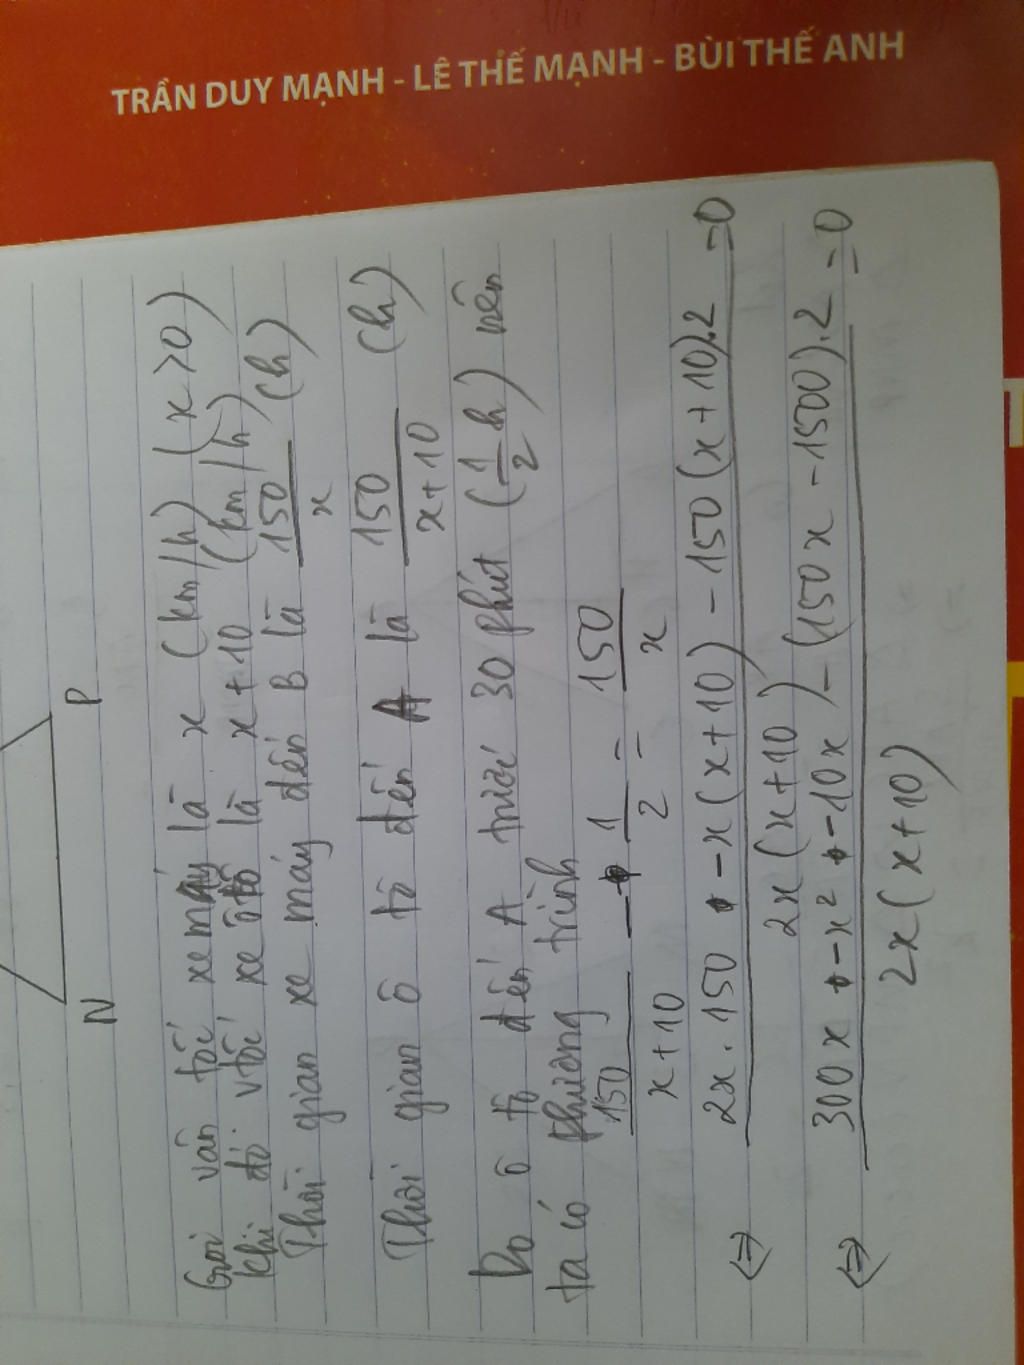 TRẦN DUY MẠNH - LÊ THẾ MẠNH - BÙI THẾ ANH
N P
Gọi vân tốc xe máy là x (km/h) (x > 0)
khi đó vtốc xe ôtô là x + 10 (km/h)
Thời gian xe máy đến B là 150/x (h)
Thời gian ô tô đến A là 150/(x+10) (h)
Do ô tô đến A trước 30 phút (1/2 h) nên
ta có phương trình
150/(x+10) - 1/2 = 150/x
⇔ (2x.150 - x(x+10) - 150(x+10).2)/(2x(x+10)) = 0
⇔ (300x - x² - 10x - (150x - 1500).2)/(2x(x+10)) = 0